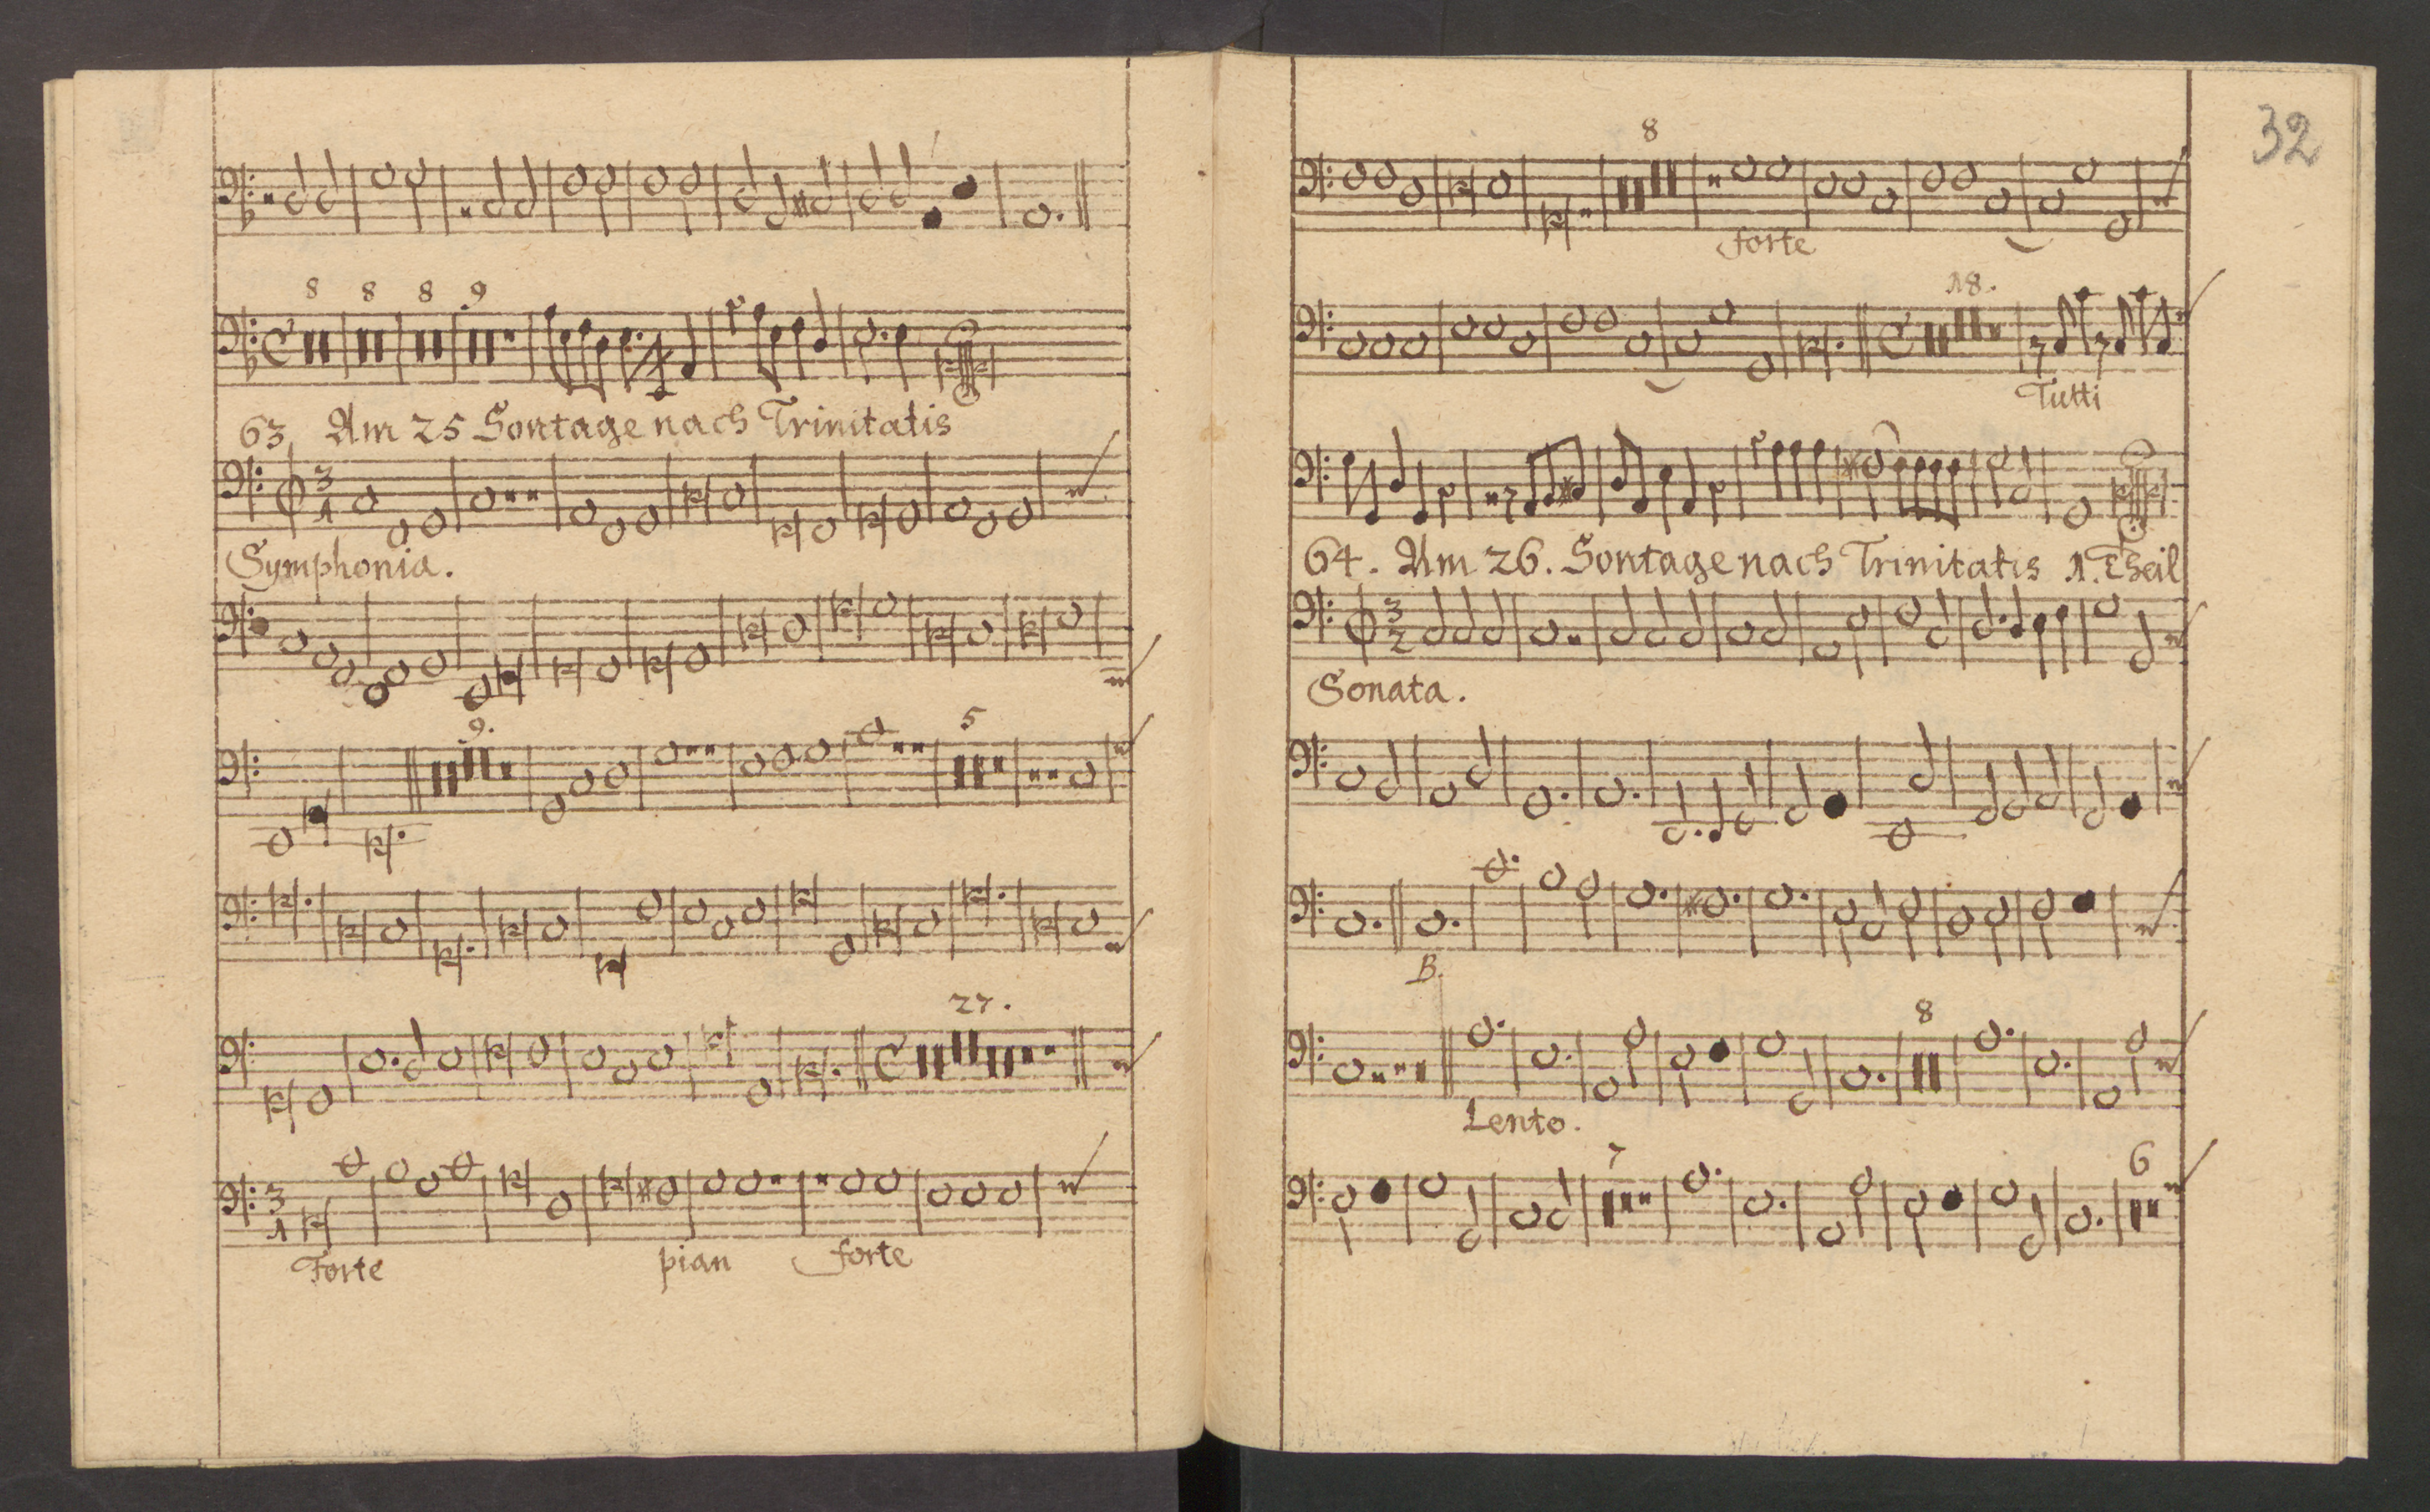 8 8 8 .9
63 Am 25 Sontage nach Trinitatis
3
1
Symphonia.
.9. 5
27.
3
1
Forte pian forte
32
8
forte
18.
Tutti
64. Am 26. Sontage nach Trinitatis 1. Theil
3
2
Sonata.
B.
8
Lento.
7 6